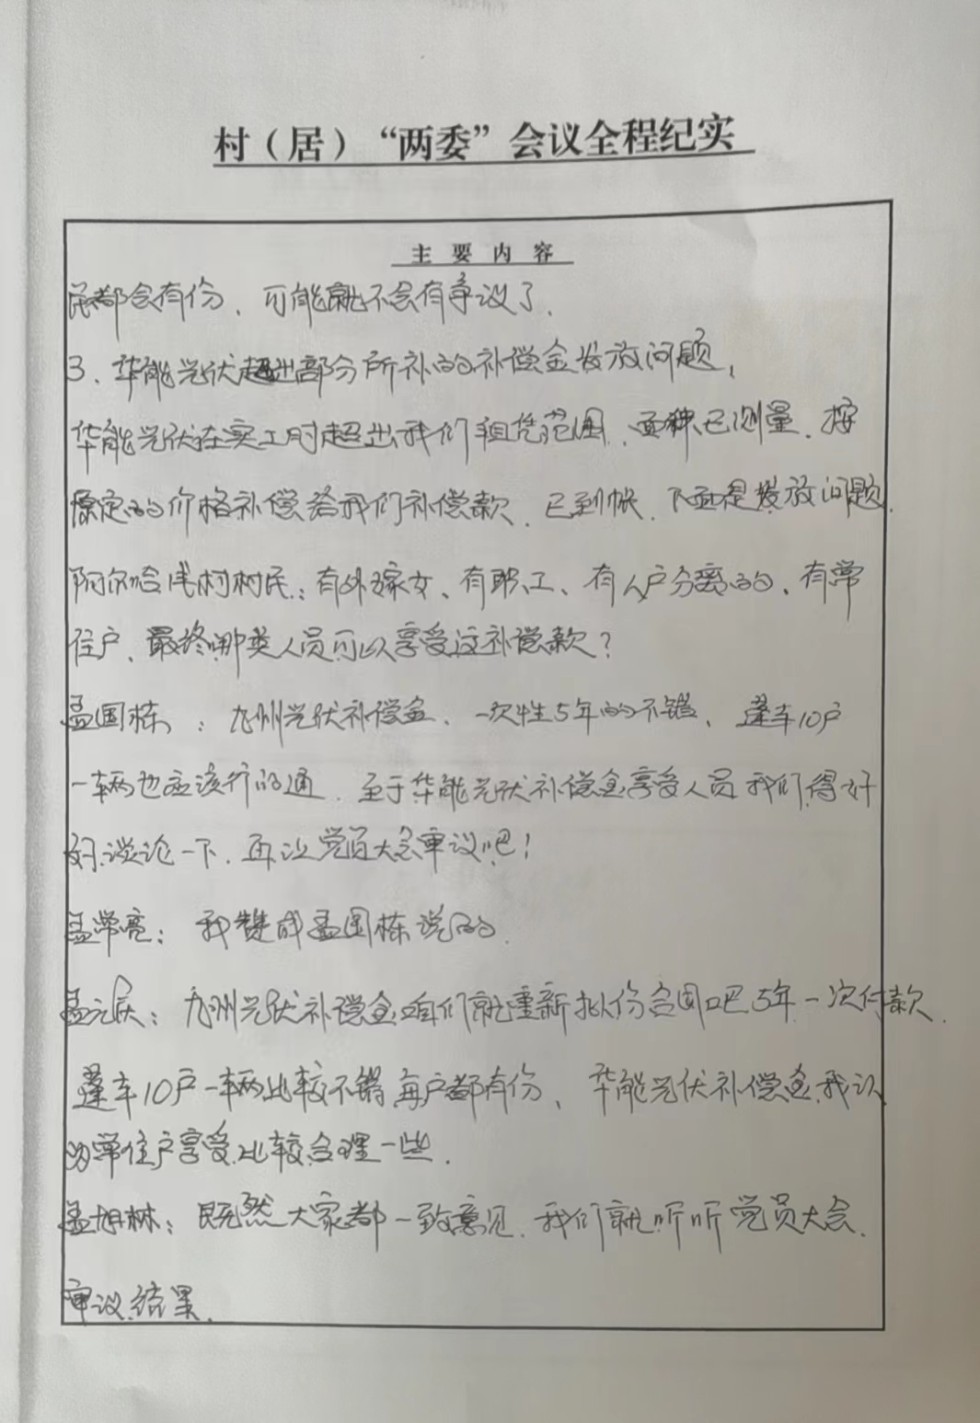 村（居）“两委”会议全程纪实
主要内容
民都会有份、可能就不会有争议了.
3、华能光伏超出部分所补的补偿金发放问题,
华能光伏在实工时超出我们租凭范围、面积已测量、按
原定的价格补偿给我们补偿款、已到帐、下面是发放问题.
阿尔哈浅村村民：有外嫁女、有职工、有人户分离的、有常
住户、最终哪类人员可以享受这补偿款？
孟国栋：九州光伏补偿金、一次性5年的不错、蓬车10户
一辆也应该行的通、至于华能光伏补偿金享受人员我们得好
好谈论一下、再让党员大会审议吧！
孟常亮：我赞成孟国栋说的.
孟元庆：九州光伏补偿金咱们就重新拟份合同吧5年一次付款.
蓬车10户一辆比较不错每户都有份、华能光伏补偿金我认
为常住户享受比较合理一些.
孟旭林：既然大家都一致意见、我们就听听党员大会.
审议结果.